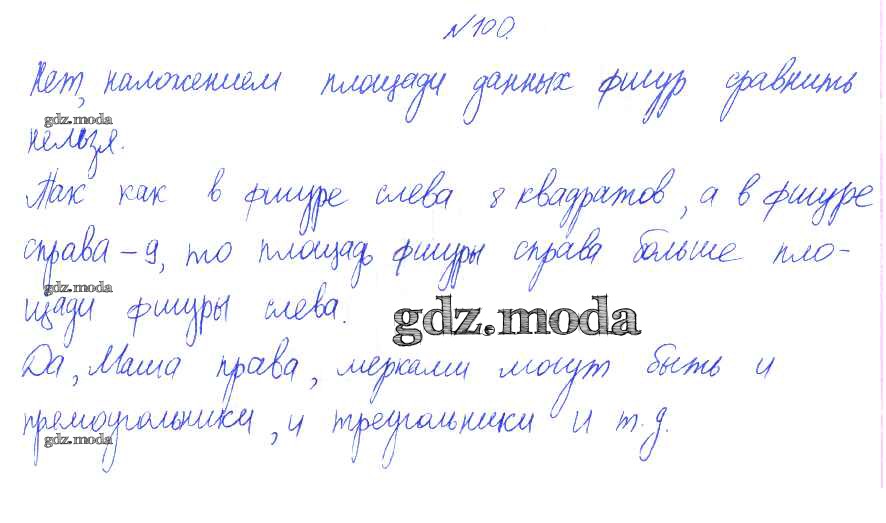 №100.
Нет, наложением площади данных фигур сравнить
gdz.moda
нельзя.
Так как в фигуре слева 8 квадратов, а в фигуре
справа – 9, то площадь фигуры справа больше пло-
gdz.moda
щади фигуры слева.
gdz.moda
Да, Маша права, мерками могут быть и
прямоугольники, и треугольники и т.д.
gdz.moda